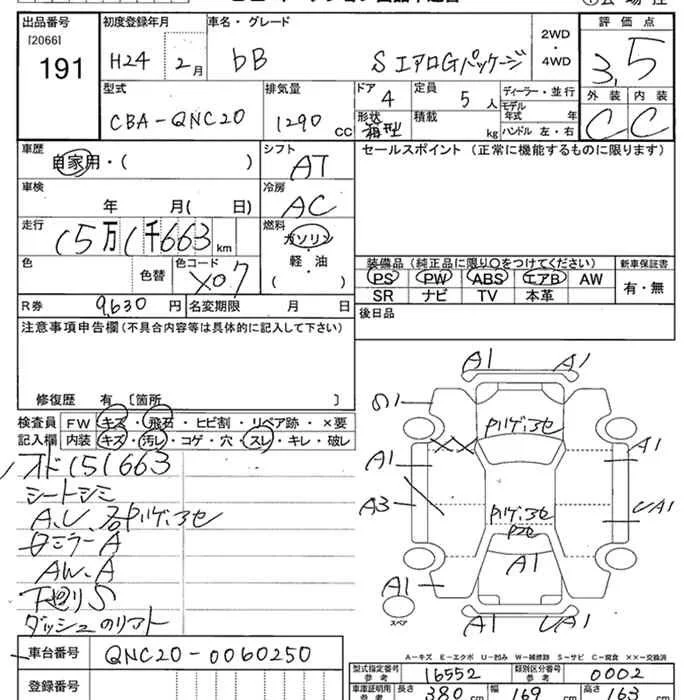 出品番号
[2066]
191
初度登録年月
H24 2月
車名・グレード
bB S エアロGパッケージ
2WD
・
4WD
評価点
3.5
外装 内装
C C
型式
CBA-QNC20
排気量
1290 cc
ドア
4
定員
5人
形状
箱型
積載
kg
ディーラー・並行
モデル
年式 年
ハンドル 左・右
車歴
自家用・( )
シフト
AT
セールスポイント (正常に機能するものに限ります)
車検
年 月( 日)
冷房
AC
走行
15万1千663km
燃料
ガソリン
軽・油
( ・ )
色
色替
色コード
X07
装備品(純正品に限り○をつけてください)
PS PW ABS エアB AW
SR ナビ TV 本革
新車保証書
有・無
R券 9,630円
名変期限 月 日
後日品
注意事項申告欄(不具合内容等は具体的に記入して下さい)
修復歴 有 〔箇所 〕
検査員 FW キズ・飛石・ヒビ割・リペア跡・×要
記入欄 内装 キズ・汚レ・コゲ・穴・スレ・キレ・破レ
オド151663
シートシミ
A.U.
ミラーA
AW.A
下廻りS
ダッシュのリアト
A1 A1
A1
A1
A3
UA1
A1
A1
A1 UA1
XX
スペア
A-キズ E-エクボ U-凹み W-補修跡 S-サビ C-腐食 XX-交換済
車台番号 QNC20-0060250
登録番号
型式指定番号
参考
16552
類別区分番号
参考
0002
車庫証明用
参考
長さ 380 cm 幅 169 cm 高さ 163 cm